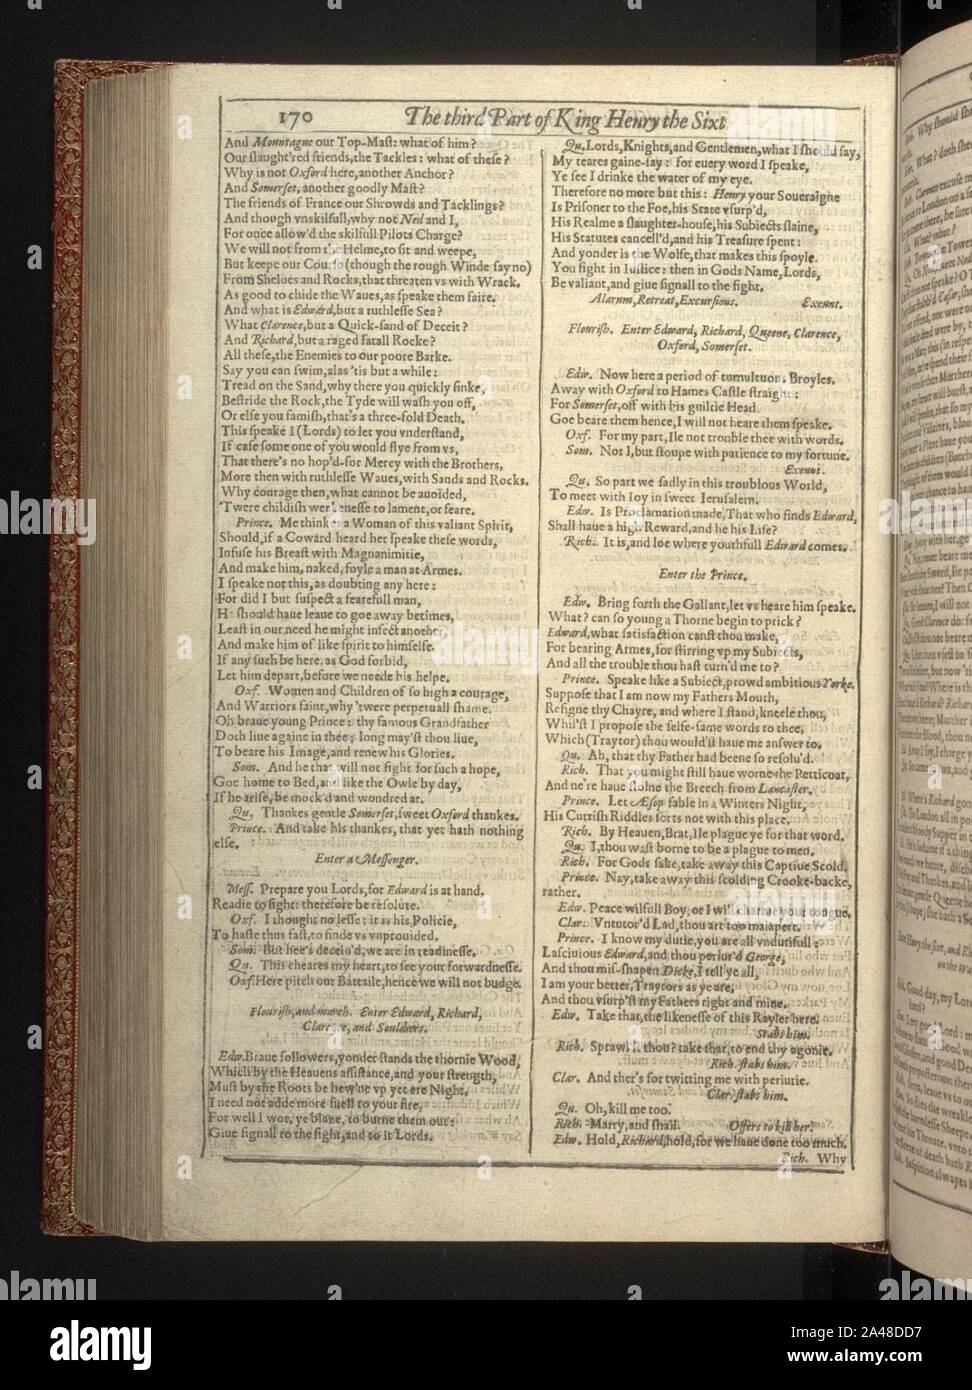 170
The third Part of King Henry the Sixt
And Mountague our Top-Mast: what of him?
Our slaught'red friends, the Tackles: what of these?
Why is not Oxford here, another Anchor?
And Somerset, another goodly Mast?
The friends of France our Shrowds and Tacklings?
And though vnskilfull, why not Ned and I,
For once allow'd the skilfull Pilots Charge?
We will not from the Helme, to sit and weepe,
But keepe our Course (though the rough Winde say no)
From Shelues and Rocks, that threaten vs with Wrack.
As good to chide the Waues, as speake them faire.
And what is Edward, but a ruthlesse Sea?
What Clarence, but a Quick-sand of Deceit?
And Richard, but a raged fatall Rocke?
All these, the Enemies to our poore Barke.
Say you can swim, alas 'tis but a while:
Tread on the Sand, why there you quickly sinke,
Bestride the Rock, the Tyde will wash you off,
Or else you famish, that's a three-fold Death.
This speake I (Lords) to let you vnderstand,
If case some one of you would flye from vs,
That there's no hop'd-for Mercy with the Brothers,
More then with ruthlesse Waues, with Sands and Rocks.
Why courage then, what cannot be auoided,
'Twere childish weakenesse to lament, or feare.
Prince. Me thinkes a Woman of this valiant Spirit,
Should, if a Coward heard her speake these words,
Infuse his Breast with Magnanimitie,
And make him, naked, foyle a man at Armes.
I speake not this, as doubting any here:
For did I but suspect a fearefull man,
He should haue leaue to goe away betimes,
Least in our need he might infect another,
And make him of like spirit to himselfe.
If any such be here, as God forbid,
Let him depart, before we neede his helpe.
Oxf. Women and Children of so high a courage,
And Warriors faint, why 'twere perpetuall shame.
Oh braue young Prince: thy famous Grandfather
Doth liue againe in thee; long may'st thou liue,
To beare his Image, and renew his Glories.
Som. And he that will not fight for such a hope,
Goe home to Bed, and like the Owle by day,
If he arise, be mock'd and wondred at.
Qu. Thankes gentle Somerset, sweet Oxford thankes.
Prince. And take his thankes, that yet hath nothing
else.
Enter a Messenger.
Mess. Prepare you Lords, for Edward is at hand.
Readie to fight: therefore be resolute.
Oxf. I thought no lesse: it is his Policie,
To haste thus fast, to finde vs vnprouided.
Som. But hee's deceiu'd, we are in readinesse.
Qu. This cheares my heart, to see your forwardnesse.
Oxf. Here pitch our Battaile, hence we will not budge.
Flourish, and march. Enter Edward, Richard,
Clarence, and Souldiers.
Edw. Braue followers, yonder stands the thornie Wood,
Which by the Heauens assistance, and your strength,
Must by the Roots be hew'ne vp yet ere Night.
I need not adde more fuell to your fire,
For well I wot, ye blaze, to burne them out:
Giue signall to the fight, and to it Lords.
Qu. Lords, Knights, and Gentlemen, what I should say,
My teares gaine-say: for euery word I speake,
Ye see I drinke the water of my eye.
Therefore no more but this: Henry your Soueraigne
Is Prisoner to the Foe, his State vsurp'd,
His Realme a slaughter-house, his Subiects slaine,
His Statutes cancell'd, and his Treasure spent:
And yonder is the Wolfe, that makes this spoyle.
You fight in Iustice: then in Gods Name, Lords,
Be valiant, and giue signall to the fight.
Alarum, Retreat, Excursions. Exeunt.
Flourish. Enter Edward, Richard, Queene, Clarence,
Oxford, Somerset.
Edw. Now here a period of tumultuous Broyles.
Away with Oxford to Hames Castle straight:
For Somerset, off with his guiltie Head.
Goe beare them hence, I will not heare them speake.
Oxf. For my part, Ile not trouble thee with words.
Som. Nor I, but stoupe with patience to my fortune.
Exeunt.
Qu. So part we sadly in this troublous World,
To meet with Ioy in sweet Ierusalem.
Edw. Is Proclamation made, That who finds Edward,
Shall haue a high Reward, and he his Life?
Rich. It is, and loe where youthfull Edward comes.
Enter the Prince.
Edw. Bring forth the Gallant, let vs heare him speake.
What? can so young a Thorne begin to prick?
Edward, what satisfaction canst thou make,
For bearing Armes, for stirring vp my Subiects,
And all the trouble thou hast turn'd me to?
Prince. Speake like a Subiect, prowd ambitious Yorke.
Suppose that I am now my Fathers Mouth,
Resigne thy Chayre, and where I stand, kneele thou,
Whil'st I propose the selfe-same words to thee,
Which (Traytor) thou would'st haue me answer to.
Qu. Ah, that thy Father had beene so resolu'd.
Rich. That you might still haue worne the Petticoat,
And ne're haue stolne the Breech from Lancaster.
Prince. Let Æsop fable in a Winters Night,
His Currish Riddles sorts not with this place.
Rich. By Heauen, Brat, Ile plague ye for that word.
Qu. I, thou wast borne to be a plague to men.
Rich. For Gods sake, take away this Captiue Scold.
Prince. Nay, take away this scolding Crooke-backe,
rather.
Edw. Peace wilfull Boy, or I will charme your tongue.
Clar. Vntutor'd Lad, thou art too malapert.
Prince. I know my dutie, you are all vndutifull:
Lasciuious Edward, and thou periur'd George,
And thou mis-shapen Dicke, I tell ye all,
I am your better, Traytors as ye are,
And thou vsurp'st my Fathers right and mine.
Edw. Take that, the likenesse of this Rayler here.
Stabs him.
Rich. Sprawl'st thou? take that, to end thy agonie.
Rich. stabs him.
Clar. And ther's for twitting me with periurie.
Clar. stabs him.
Qu. Oh, kill me too.
Rich. Marry, and shall. Offers to kill her.
Edw. Hold, Richard, hold, for we haue done too much.
Rich. Why
alamy
Image ID: 2A48DD7
www.alamy.com